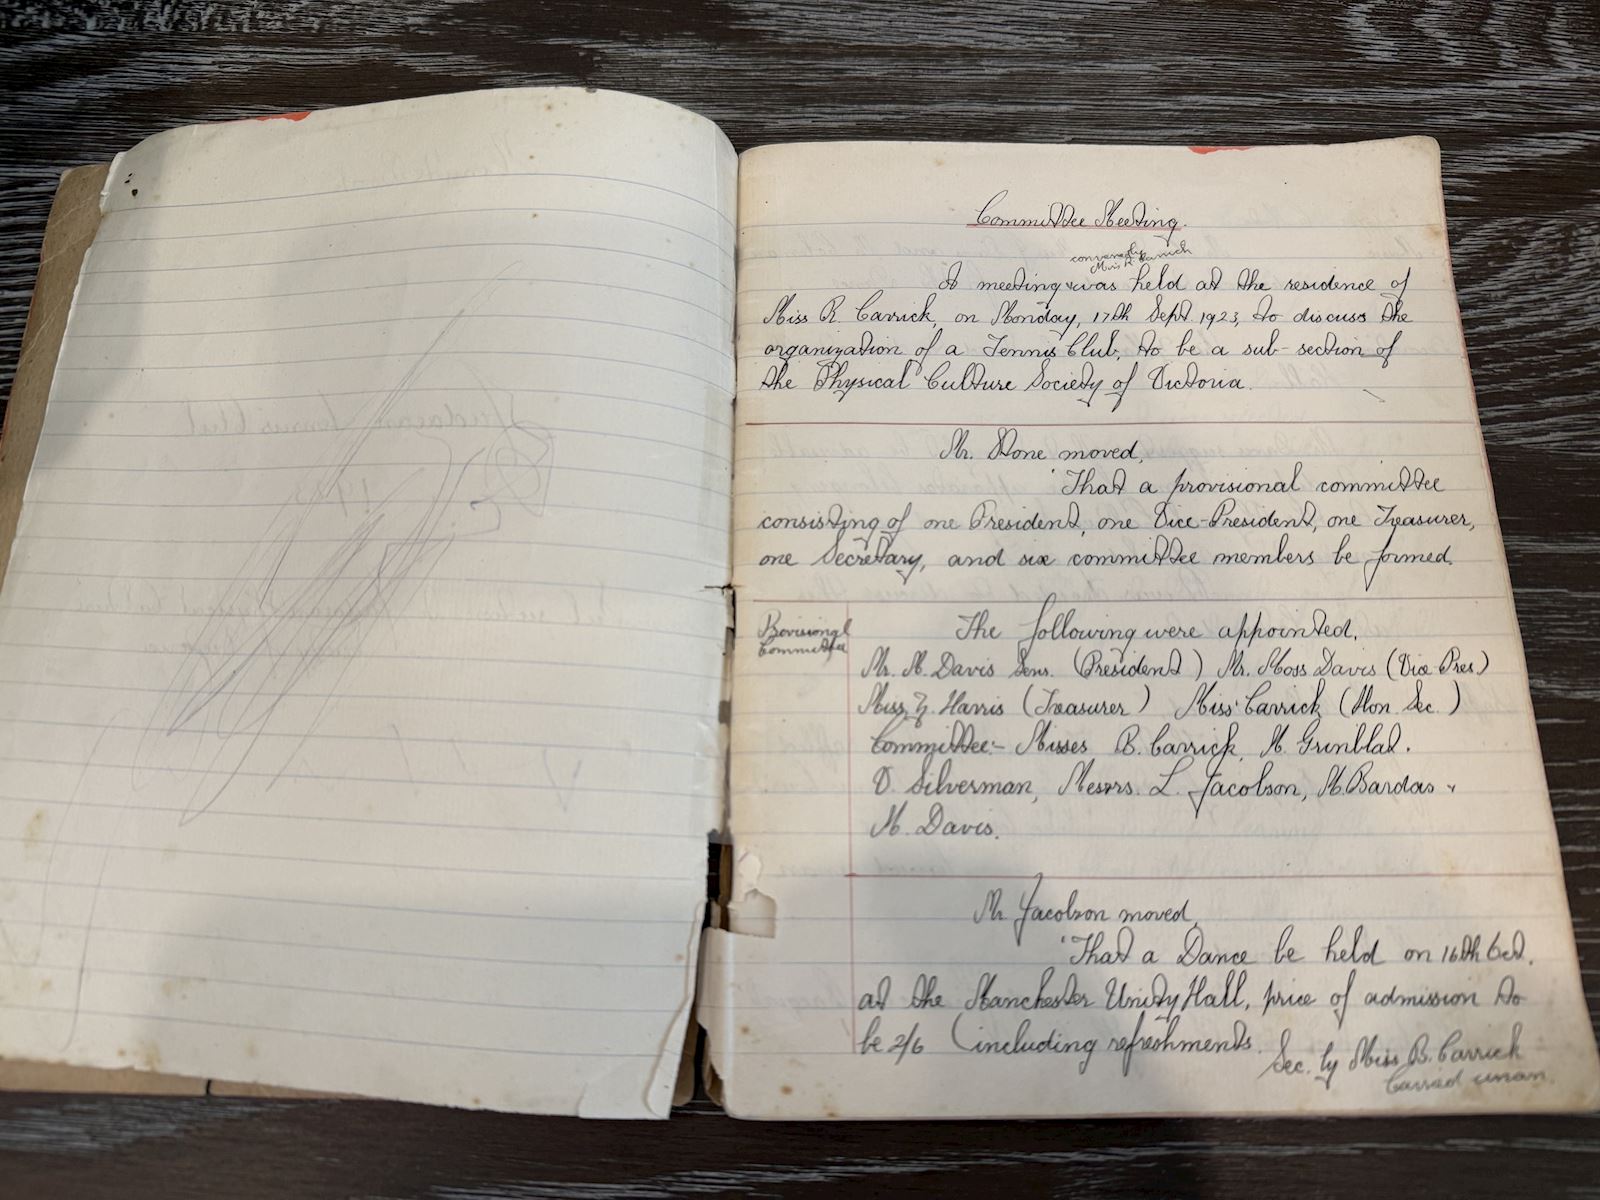 Committee Meeting.
convened by
Miss R Carrick
A meeting was held at the residence of
Miss R. Carrick, on Monday, 17th Sept. 1923, to discuss the
organization of a Tennis Club, to be a sub-section of
the Physical Culture Society of Victoria.
Mr. Stone moved,
'That a provisional committee
consisting of one President, one Vice-President, one Treasurer,
one Secretary, and six committee members be formed.
Provisional
Committee
The following were appointed,
Mr. M. Davis Senr. (President) Mr. Moss Davis (Vice-Pres.)
Miss Y. Harris (Treasurer) Miss Carrick (Hon. Sec.)
Committee:- Misses B. Carrick, M. Grinblat.
V. Silverman, Messrs. L. Jacobson, M. Bardas &
M. Davis.
Mr Jacobson moved,
'That a Dance be held on 16th Oct.
at the Manchester Unity Hall, price of admission to
be 2/6 (including refreshments.
Sec. by Miss B. Carrick
Carried unan.